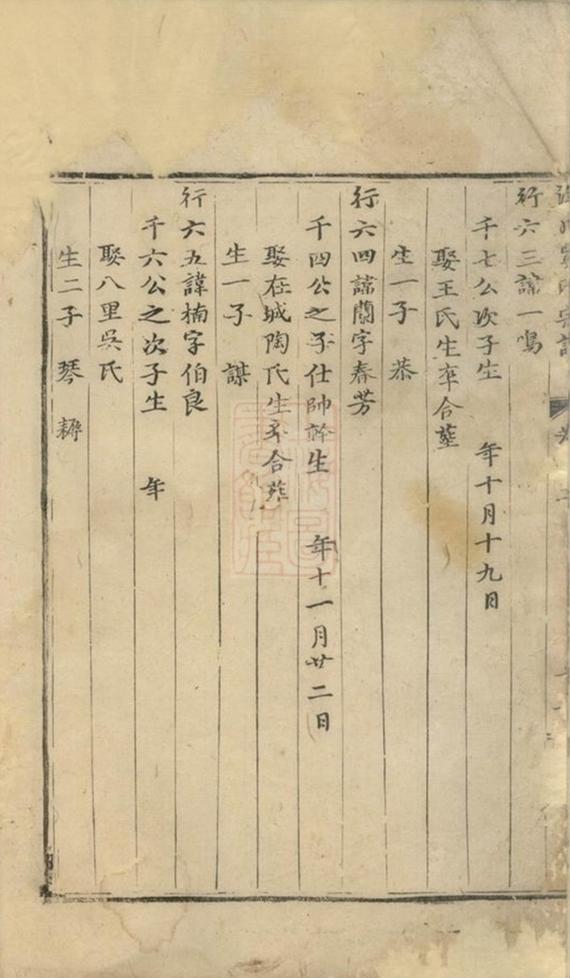 行六三諱一鳴
千七公次子生 年十月十九日
娶王氏生卒合塟
生一子 恭
行六四諱蘭字春芳
千四公之子仕帥幹生 年十一月廿二日
娶在城陶氏生卒合葬
生一子 謀
行六五諱楠字伯良
千六公之次子生 年
娶八里吳氏
生二子 琴